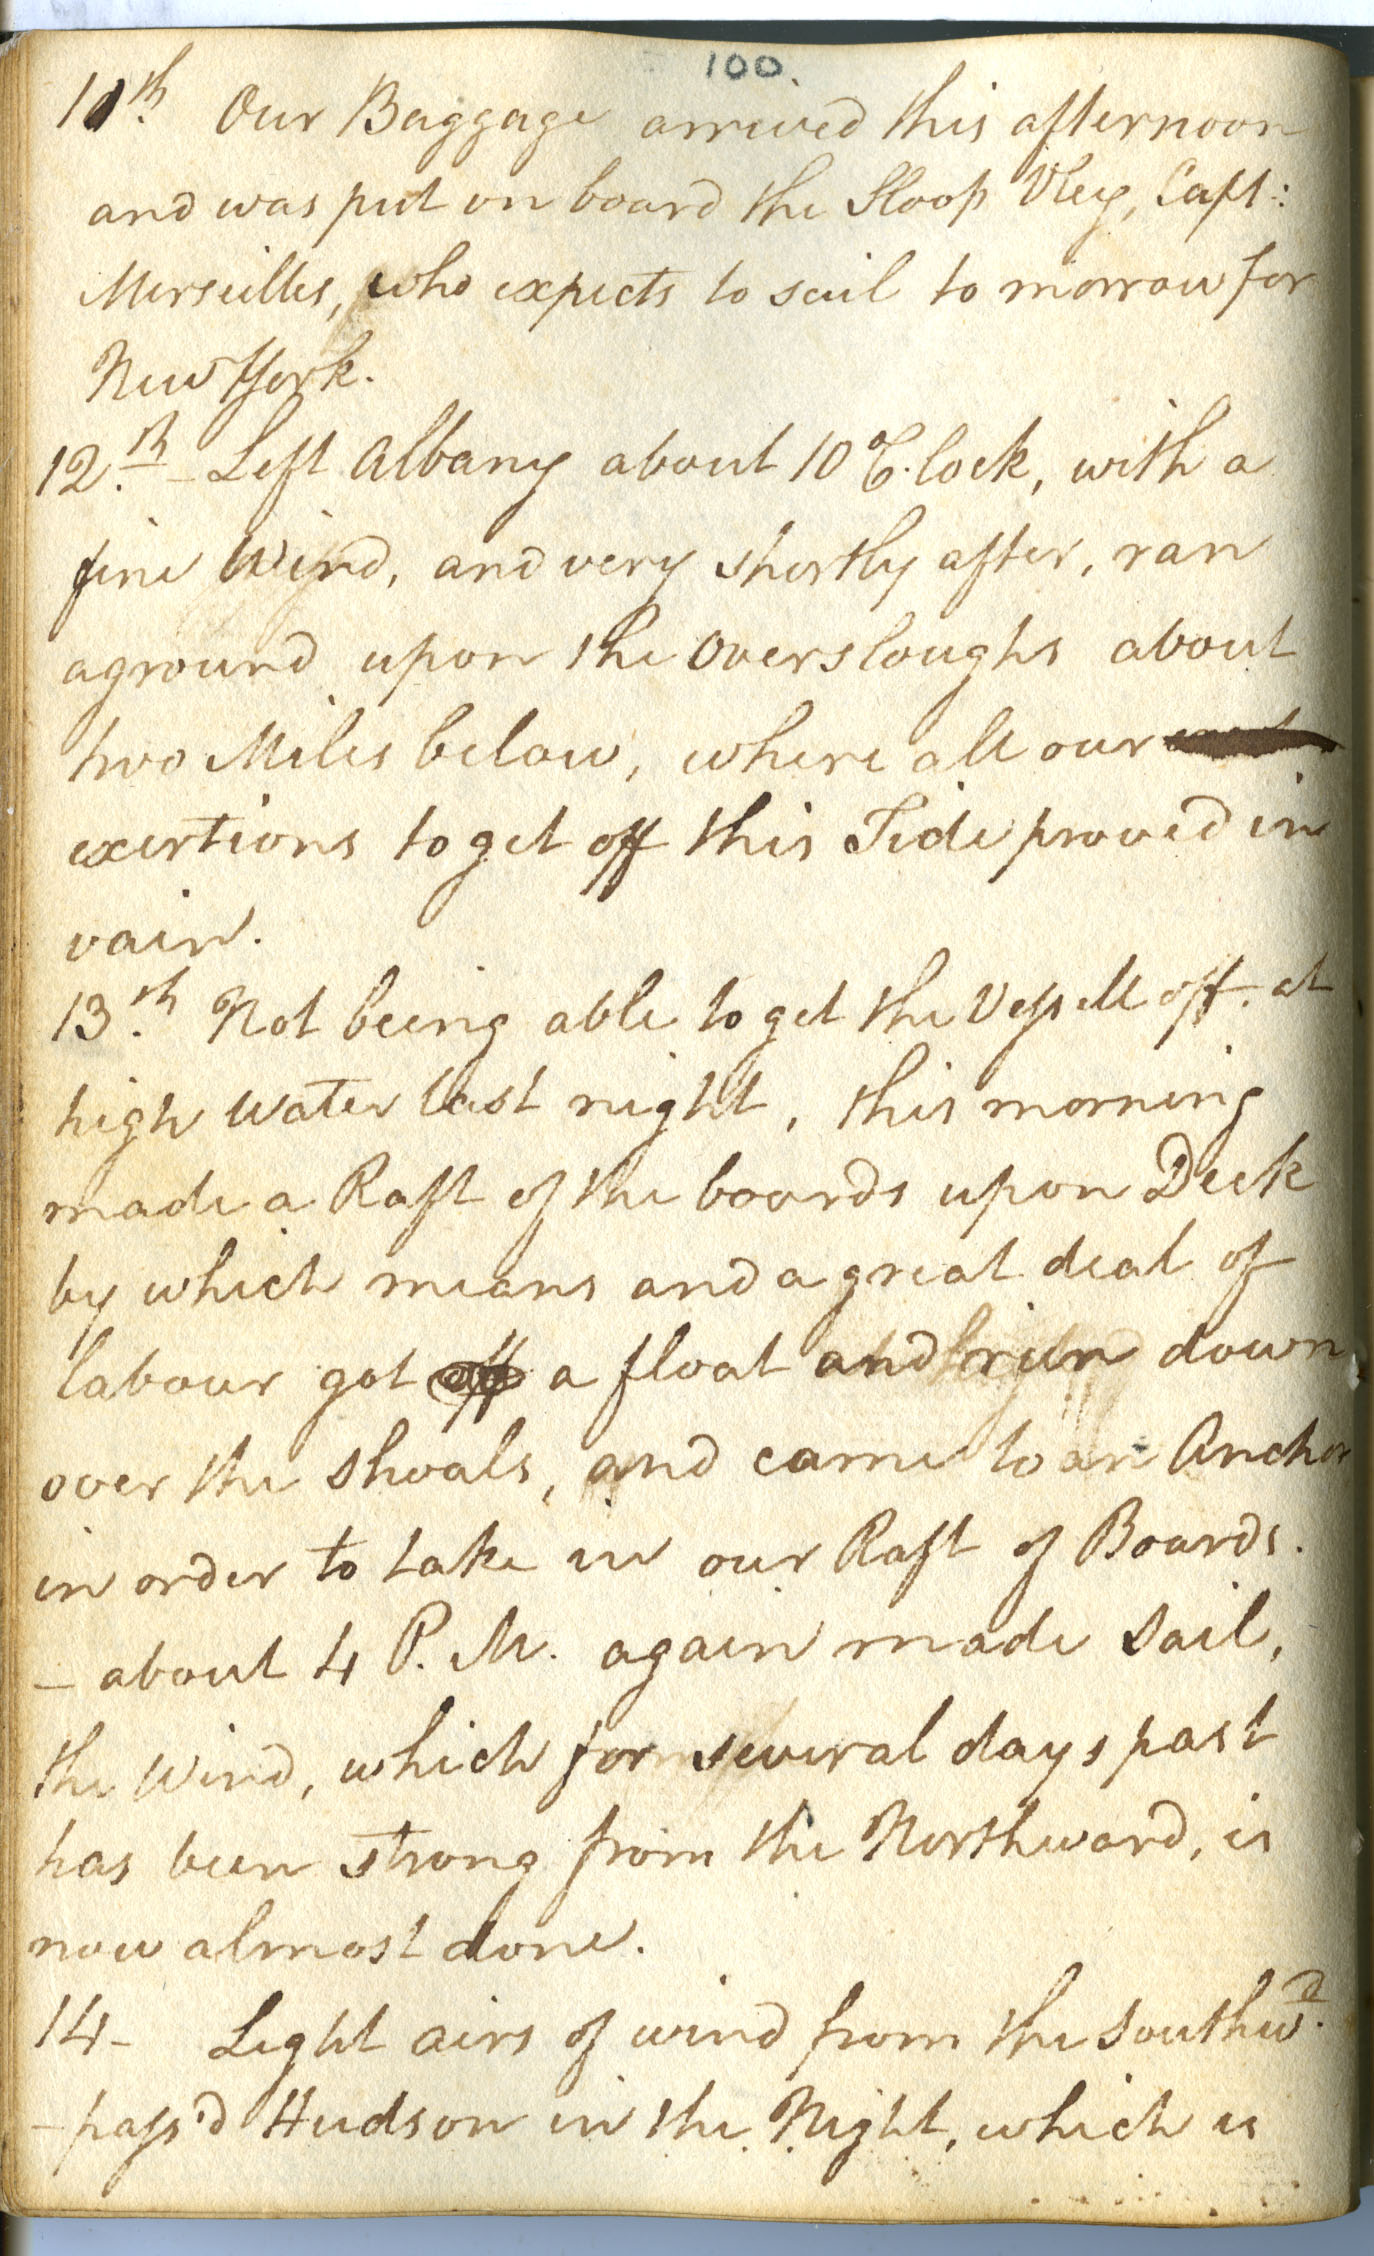 100.
11th. Our Baggage arrived this afternoon
and was put on board the Sloop Vley, Capt:
Merseilles, who expects to sail to morrow for
New York.
12.th - Left Albany about 10 oC.lock, with a
fine Wind, and very shortly after, ran
aground upon the Oversloughs about
two Miles below, where all our
exertions to get off this Tide proved in
vain.
13.th Not being able to get the Vessell off at
high Water last night, this morning
made a Raft of the boards upon Deck
by which means and a great deal of
labour got off a float and run down
over the shoals, and came to an Anchor
in order to take in our Raft of Boards.
- about 4 P.M. again made sail,
the Wind, which for several days past
has been strong from the Northward, is
now almost done.
14- Light airs of wind from the Southwd.
- pass'd Hudson in the Night, which is